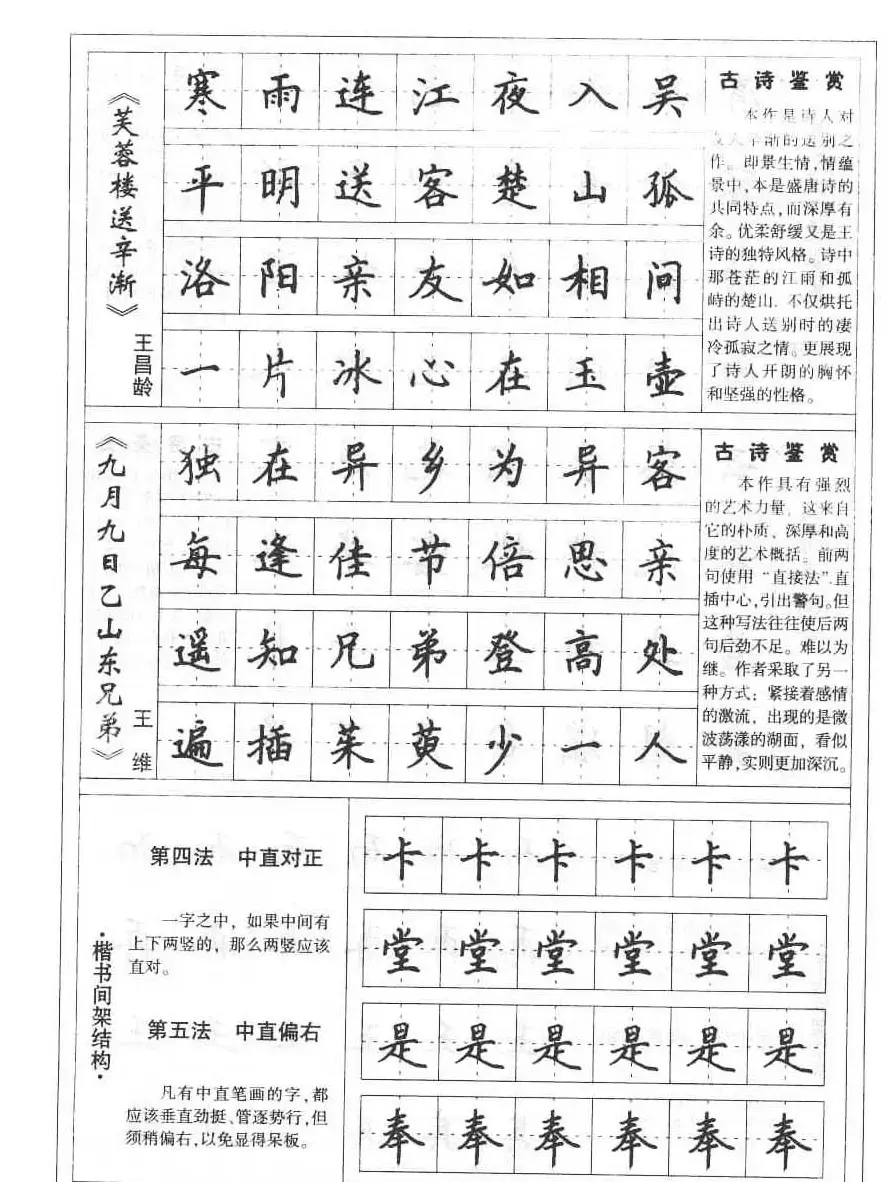 《芙蓉楼送辛渐》
王昌龄
寒雨连江夜入吴
平明送客楚山孤
洛阳亲友如相问
一片冰心在玉壶
古诗鉴赏
本作是诗人对
友人辛渐的送别之
作。即景生情,情蕴
景中,本是盛唐诗的
共同特点,而深厚有
余。优柔舒缓又是王
诗的独特风格。诗中
那苍茫的江雨和孤
峙的楚山.不仅烘托
出诗人送别时的凄
冷孤寂之情。更展现
了诗人开朗的胸怀
和坚强的性格。
《九月九日乙山东兄弟》
王 维
独在异乡为异客
每逢佳节倍思亲
遥知兄弟登高处
遍插茱萸少一人
古诗鉴赏
本作具有强烈
的艺术力量。这来自
它的朴质、深厚和高
度的艺术概括。前两
句使用“直接法”.直
插中心,引出警句。但
这种写法往往使后两
句后劲不足。难以为
继。作者采取了另一
种方式：紧接着感情
的激流，出现的是微
波荡漾的湖面，看似
平静,实则更加深沉。
·楷书间架结构·
第四法 中直对正
一字之中，如果中间有
上下两竖的，那么两竖应该
直对。
第五法 中直偏右
凡有中直笔画的字,都
应该垂直劲挺、管逐势行,但
须稍偏右,以免显得呆板。
卡卡卡卡卡卡
堂堂堂堂堂堂
是是是是是是
奉奉奉奉奉奉